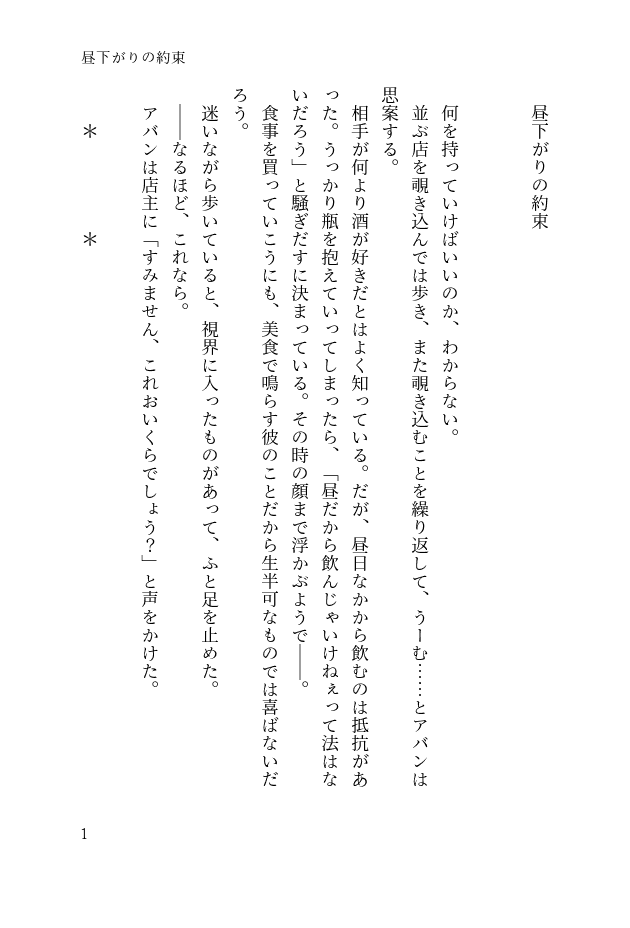 昼下がりの約束
昼下がりの約束
何を持っていけばいいのか、わからない。
並ぶ店を覗き込んでは歩き、また覗き込むことを繰り返して、うーむ……とアバンは
思案する。
相手が何より酒が好きだとはよく知っている。だが、昼日なかから飲むのは抵抗があ
った。うっかり瓶を抱えていってしまったら、「昼だから飲んじゃいけねぇって法はな
いだろう」と騒ぎだすに決まっている。その時の顔まで浮かぶようで――。
食事を買っていこうにも、美食で鳴らす彼のことだから生半可なものでは喜ばないだ
ろう。
迷いながら歩いていると、視界に入ったものがあって、ふと足を止めた。
――なるほど、これなら。
アバンは店主に「すみません、これおいくらでしょう？」と声をかけた。
＊　　＊
1